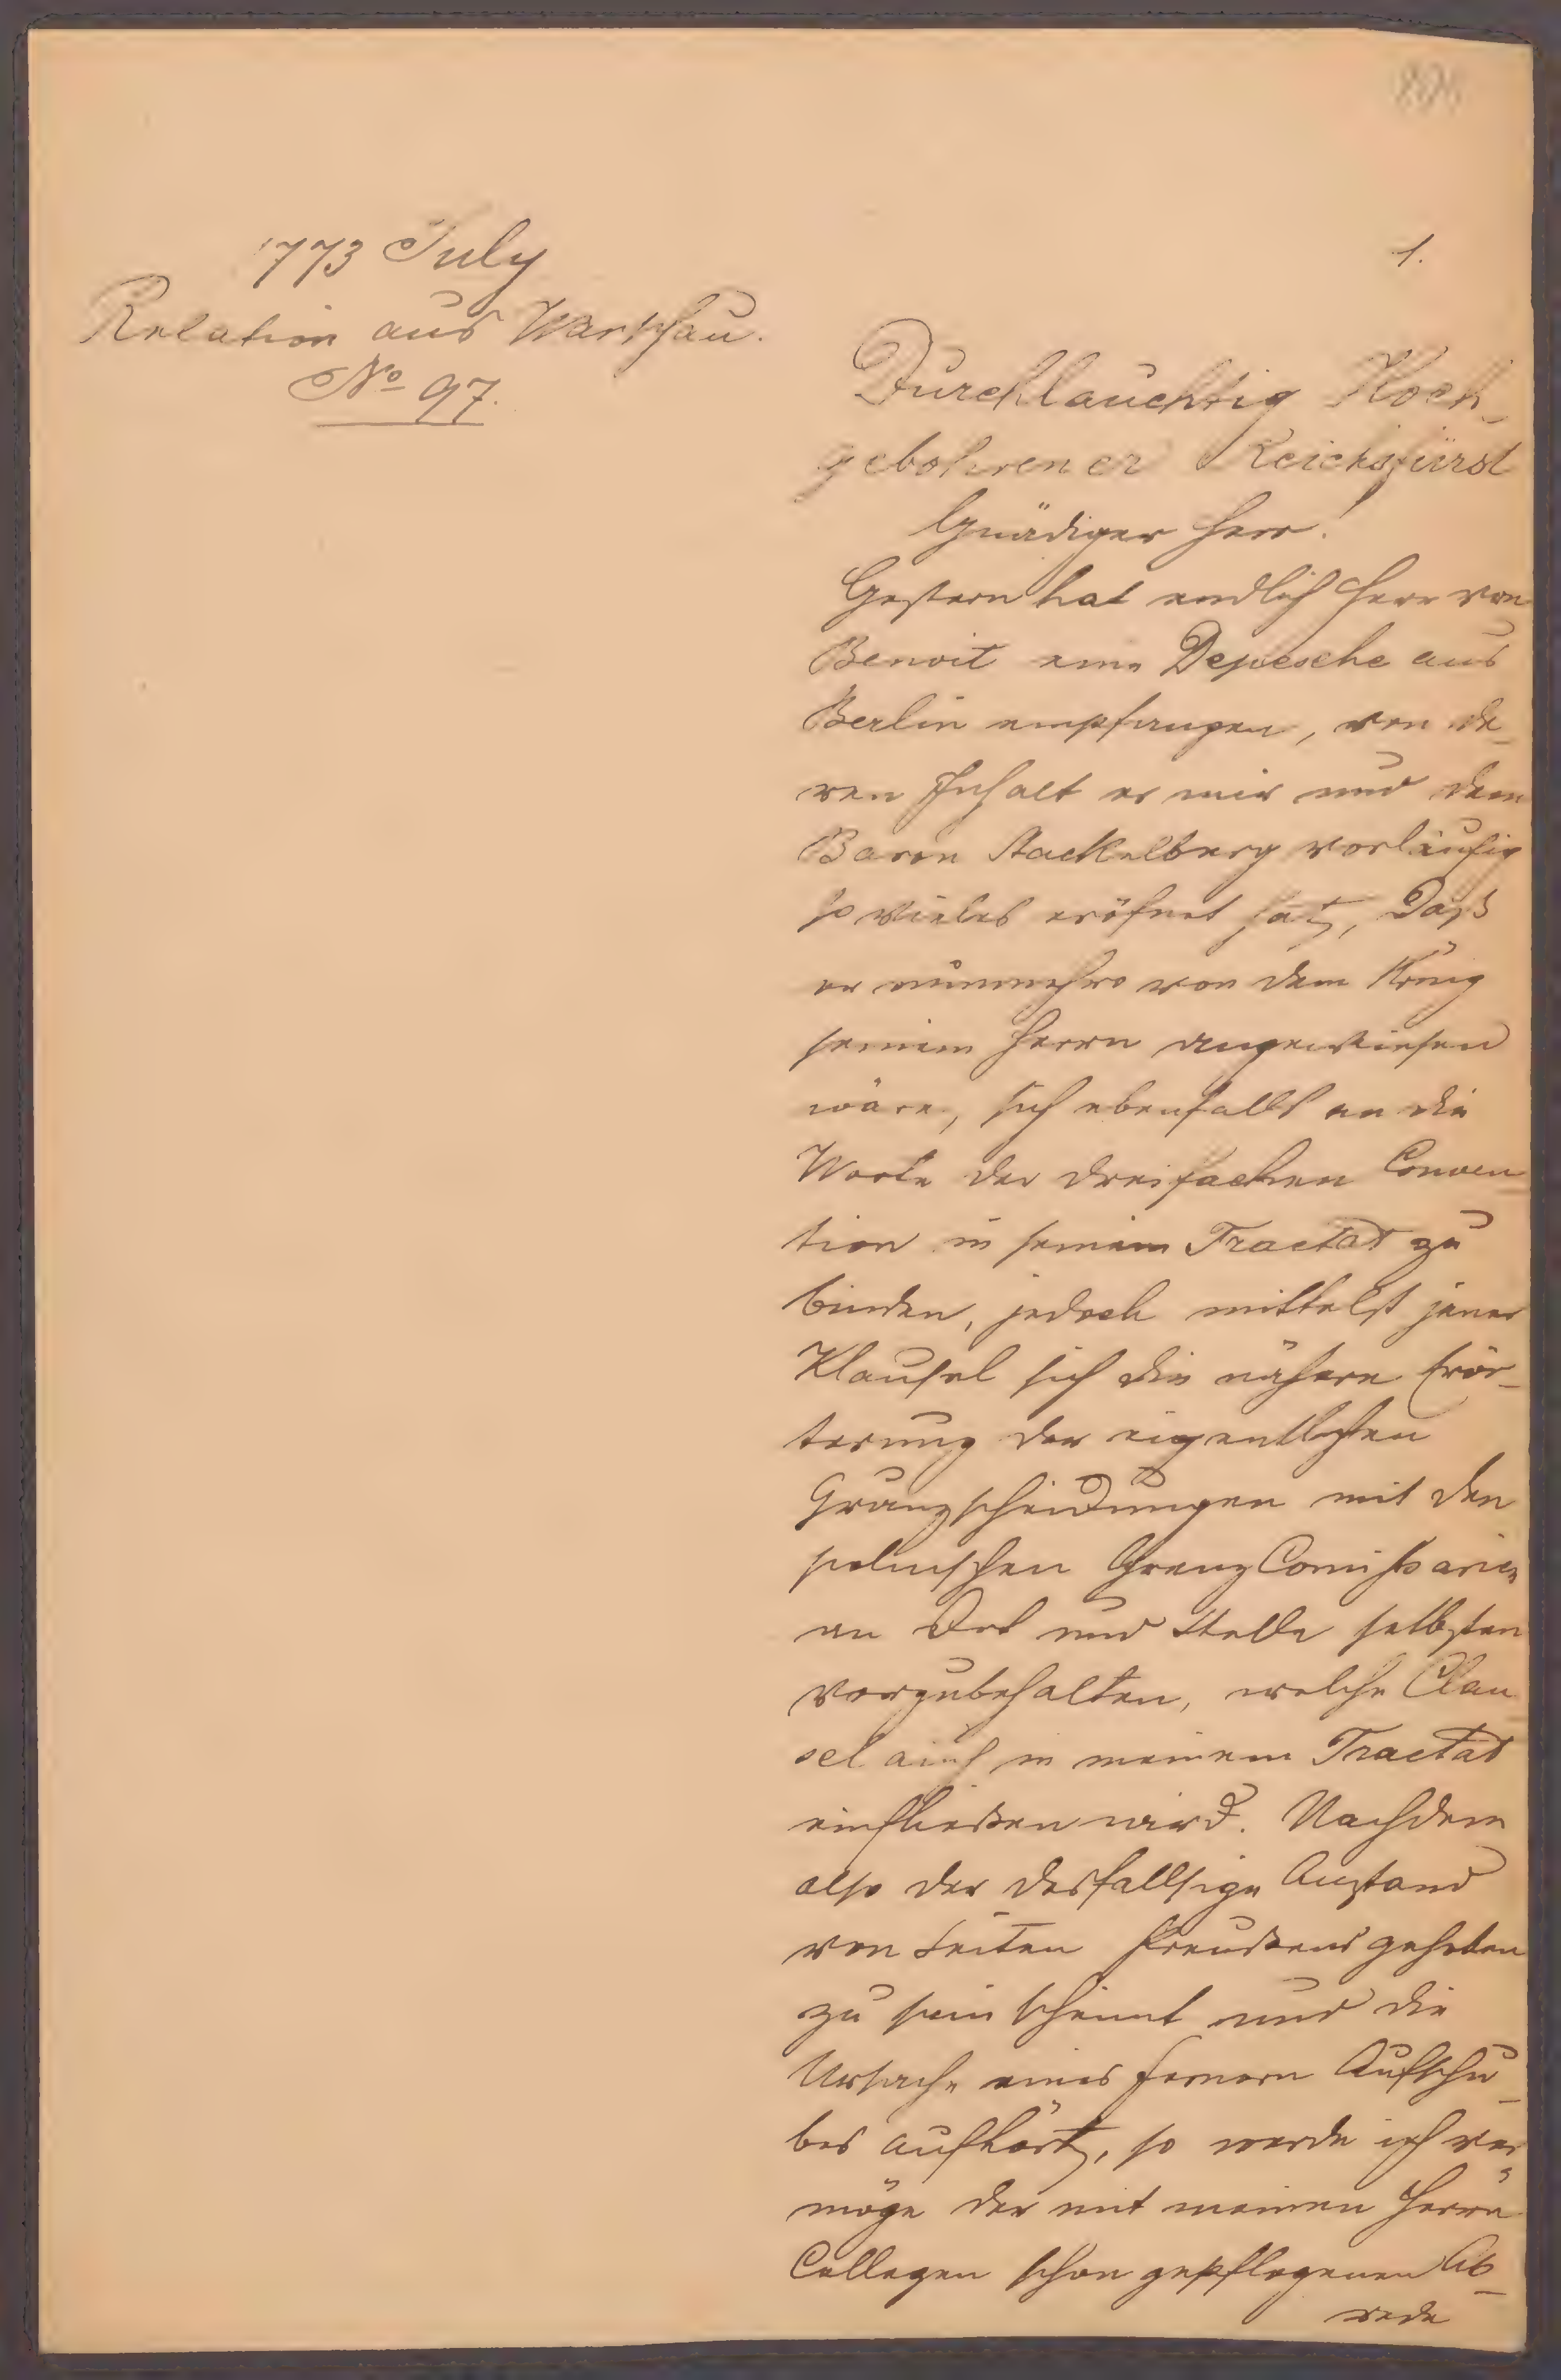 1773 July
Relation aus Warschau.
No 97.
1.
Durchlauchtig Hoch-
gebohrener Reichsfürst
Gnädiger Herr!
Gestern hat endlich Herr von
Benoit eine Depesche aus
Berlin empfangen, von de-
ren Inhalt er mir und dem
Baron Stackelberg vorläufig
so vieles eröfnet hat, Daß
er nunmehro von dem König
seinem Herrn angewiesen
wäre, sich ebenfalls an die
Worte der dreifachen Conven-
tion in seinem Tractat zu
binden, jedoch mittelst jener
Klausel sich die nähere Erör-
terung der eigentlichen
Gränzscheidungen mit den
polnischen Grenz Comissarien
an Ort und Stelle selbsten
vorzubehalten, welche Clau-
sel auch in meinem Tractat
einfließen wird. Nachdem
also der desfallsige Anstand
von Seiten Preußens gehoben
zu sein scheint und die
Ursache eines fernern Aufschu-
bes aufhört, so werde ich ver-
möge der mit meinen Herrn
Collegen schon gepflogenen Ab-
rede